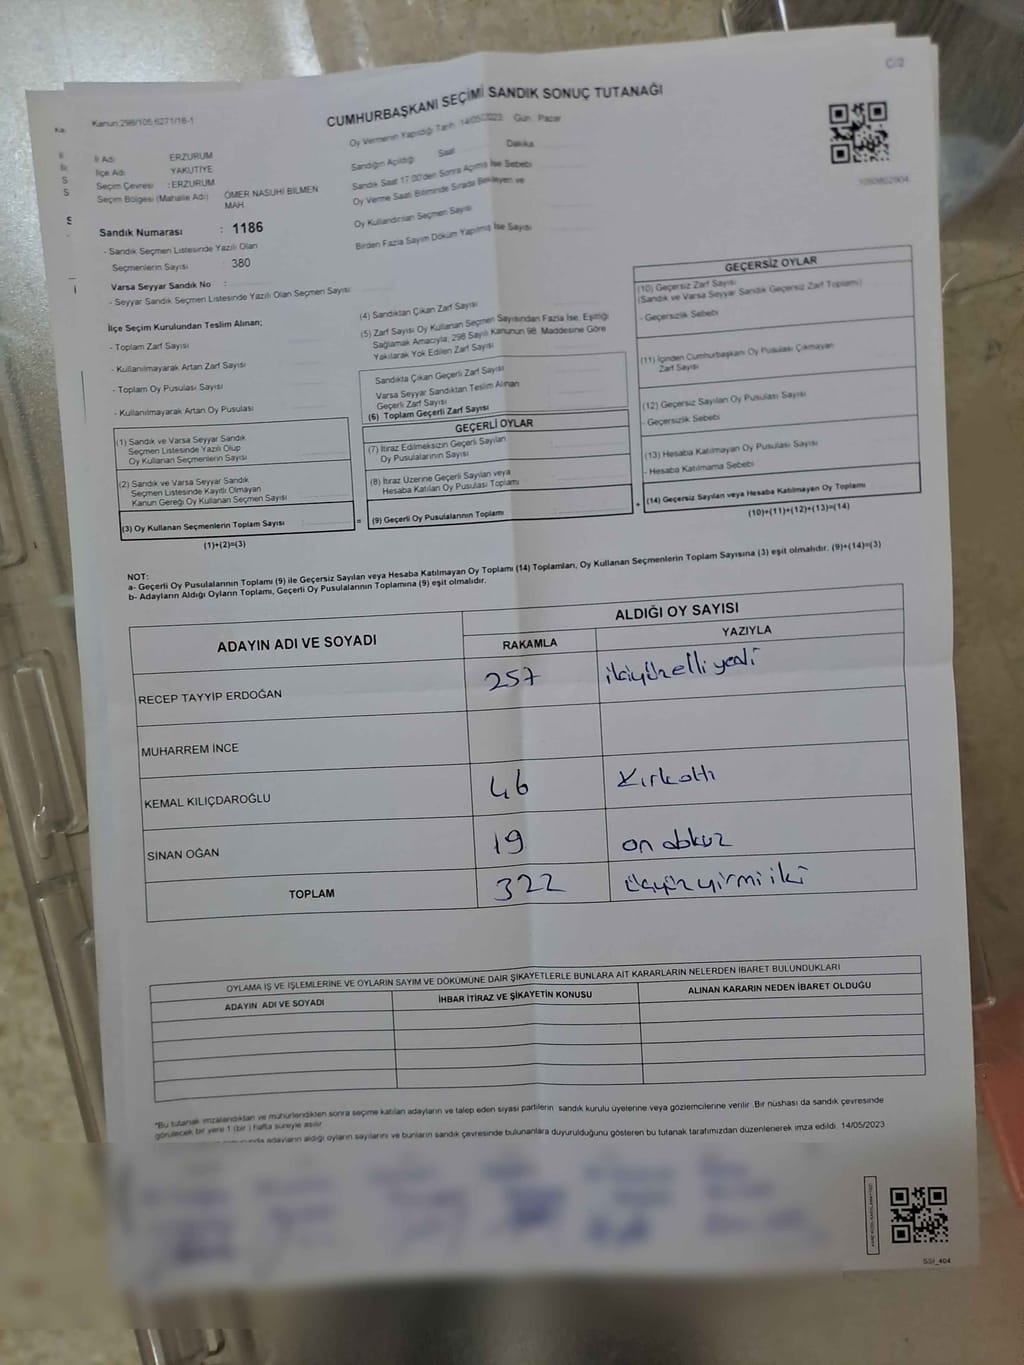 C/2
Kanun:298/105,6271/18-1
CUMHURBAŞKANI SEÇİMİ SANDIK SONUÇ TUTANAĞI
Oy Vermenin Yapıldığı Tarih: 14/05/2023 Gün: Pazar
İl Adı ERZURUM
İlçe Adı YAKUTİYE
Seçim Çevresi : ERZURUM
Seçim Bölgesi (Mahalle Adı) ÖMER NASUHİ BİLMEN MAH.
Sandığın Açıldığı Saat Dakika
Sandık Saat 17:00'den Sonra Açılmış İse Sebebi
Oy Verme Saati Bitiminde Sırada Bekleyen ve
Oy Kullandırılan Seçmen Sayısı
Birden Fazla Sayım Döküm Yapılmış İse Sayısı
Sandık Numarası : 1186
- Sandık Seçmen Listesinde Yazılı Olan
Seçmenlerin Sayısı : 380
Varsa Seyyar Sandık No :
- Seyyar Sandık Seçmen Listesinde Yazılı Olan Seçmen Sayısı
İlçe Seçim Kurulundan Teslim Alınan;
- Toplam Zarf Sayısı
- Kullanılmayarak Artan Zarf Sayısı
- Toplam Oy Pusulası Sayısı
- Kullanılmayarak Artan Oy Pusulası
(1) Sandık ve Varsa Seyyar Sandık
Seçmen Listesinde Yazılı Olup
Oy Kullanan Seçmenlerin Sayısı
(2) Sandık ve Varsa Seyyar Sandık
Seçmen Listesinde Kayıtlı Olmayan
Kanun Gereği Oy Kullanan Seçmen Sayısı
(3) Oy Kullanan Seçmenlerin Toplam Sayısı
(1)+(2)=(3)
(4) Sandıktan Çıkan Zarf Sayısı
(5) Zarf Sayısı Oy Kullanan Seçmen Sayısından Fazla İse, Eşitliği
Sağlamak Amacıyla; 298 Sayılı Kanunun 98. Maddesine Göre
Yakılarak Yok Edilen Zarf Sayısı
Sandıkta Çıkan Geçerli Zarf Sayısı
Varsa Seyyar Sandıktan Teslim Alınan
Geçerli Zarf Sayısı
(6) Toplam Geçerli Zarf Sayısı
GEÇERLİ OYLAR
(7) İtiraz Edilmeksizin Geçerli Sayılan
Oy Pusulalarının Sayısı
(8) İtiraz Üzerine Geçerli Sayılan veya
Hesaba Katılan Oy Pusulası Toplamı
= (9) Geçerli Oy Pusulalarının Toplamı
GEÇERSİZ OYLAR
(10) Geçersiz Zarf Sayısı
(Sandık ve Varsa Seyyar Sandık Geçersiz Zarf Toplamı)
- Geçersizlik Sebebi
(11) İçinden Cumhurbaşkanı Oy Pusulası Çıkmayan
Zarf Sayısı
(12) Geçersiz Sayılan Oy Pusulası Sayısı
- Geçersizlik Sebebi
(13) Hesaba Katılmayan Oy Pusulası Sayısı
- Hesaba Katılmama Sebebi
+ (14) Geçersiz Sayılan veya Hesaba Katılmayan Oy Toplamı
(10)+(11)+(12)+(13)=(14)
NOT:
a- Geçerli Oy Pusulalarının Toplamı (9) ile Geçersiz Sayılan veya Hesaba Katılmayan Oy Toplamı (14) Toplamları, Oy Kullanan Seçmenlerin Toplam Sayısına (3) eşit olmalıdır. (9)+(14)=(3)
b- Adayların Aldığı Oyların Toplamı, Geçerli Oy Pusulalarının Toplamına (9) eşit olmalıdır.
ADAYIN ADI VE SOYADI ALDIĞI OY SAYISI
RAKAMLA YAZIYLA
RECEP TAYYİP ERDOĞAN 257 ikiyüzelliyedi
MUHARREM İNCE
KEMAL KILIÇDAROĞLU 46 kırkaltı
SİNAN OĞAN 19 on dokuz
TOPLAM 322 üçyüzyirmiiki
OYLAMA İŞ VE İŞLEMLERİNE VE OYLARIN SAYIM VE DÖKÜMÜNE DAİR ŞİKAYETLERLE BUNLARA AİT KARARLARIN NELERDEN İBARET BULUNDUKLARI
ADAYIN ADI VE SOYADI İHBAR İTİRAZ VE ŞİKAYETİN KONUSU ALINAN KARARIN NEDEN İBARET OLDUĞU
*Bu tutanak imzalandıktan ve mühürlendikten sonra seçime katılan adayların ve talep eden siyasi partilerin sandık kurulu üyelerine veya gözlemcilerine verilir. Bir nüshası da sandık çevresinde
görülecek bir yere 1 (bir ) hafta süreyle asılır.
adayların aldığı oyların sayılarını ve bunların sandık çevresinde bulunanlara duyurulduğunu gösteren bu tutanak tarafımızdan düzenlenerek imza edildi. 14/05/2023
SSİ_404